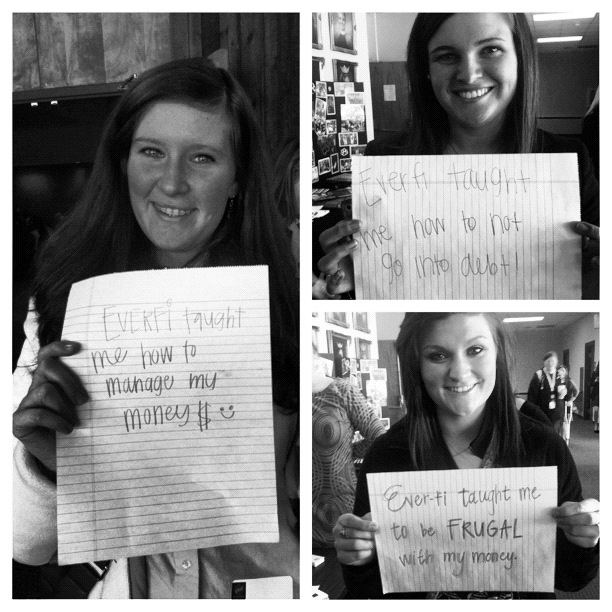 EVERFi taught
me how to
manage my
money $ :)
Everfi taught
me how to not
go into debt!
Ever-fi taught me
to be FRUGAL
with my money.